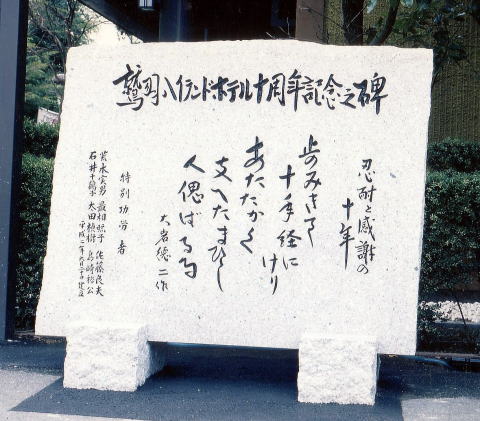 鷲羽ハイランドホテル十周年記念之碑
忍耐と感謝の
十年
歩みきて
十年経に
けり
あたたかく
支へたまひし
人偲ばるる
大岩徳二作
特別功労者
荒木実男 最相聡子 佐藤良夫
石井千鶴子 太田植樹 島崎裕公